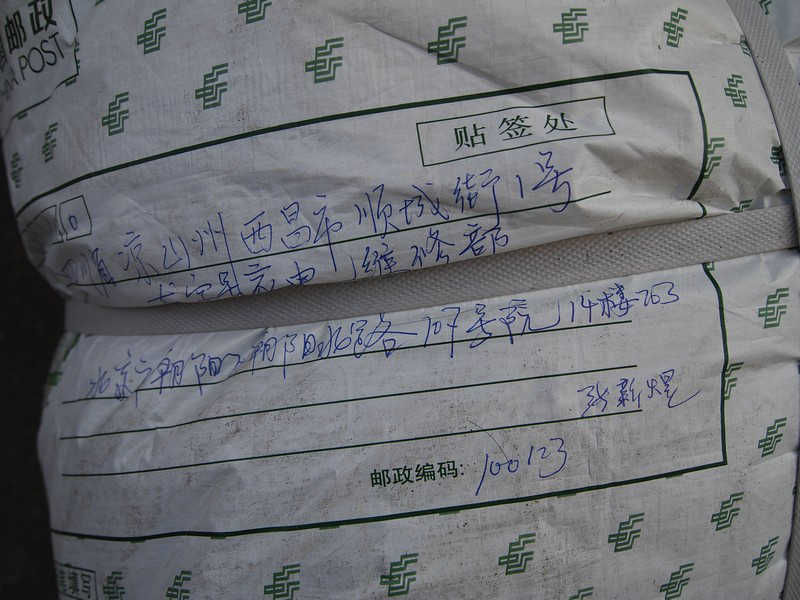 邮政
POST
贴签处
凉山州西昌市顺城街1号
维修部
北京市朝阳区朝阳北路107号院14楼763
张新煜
邮政编码: 100123
填写